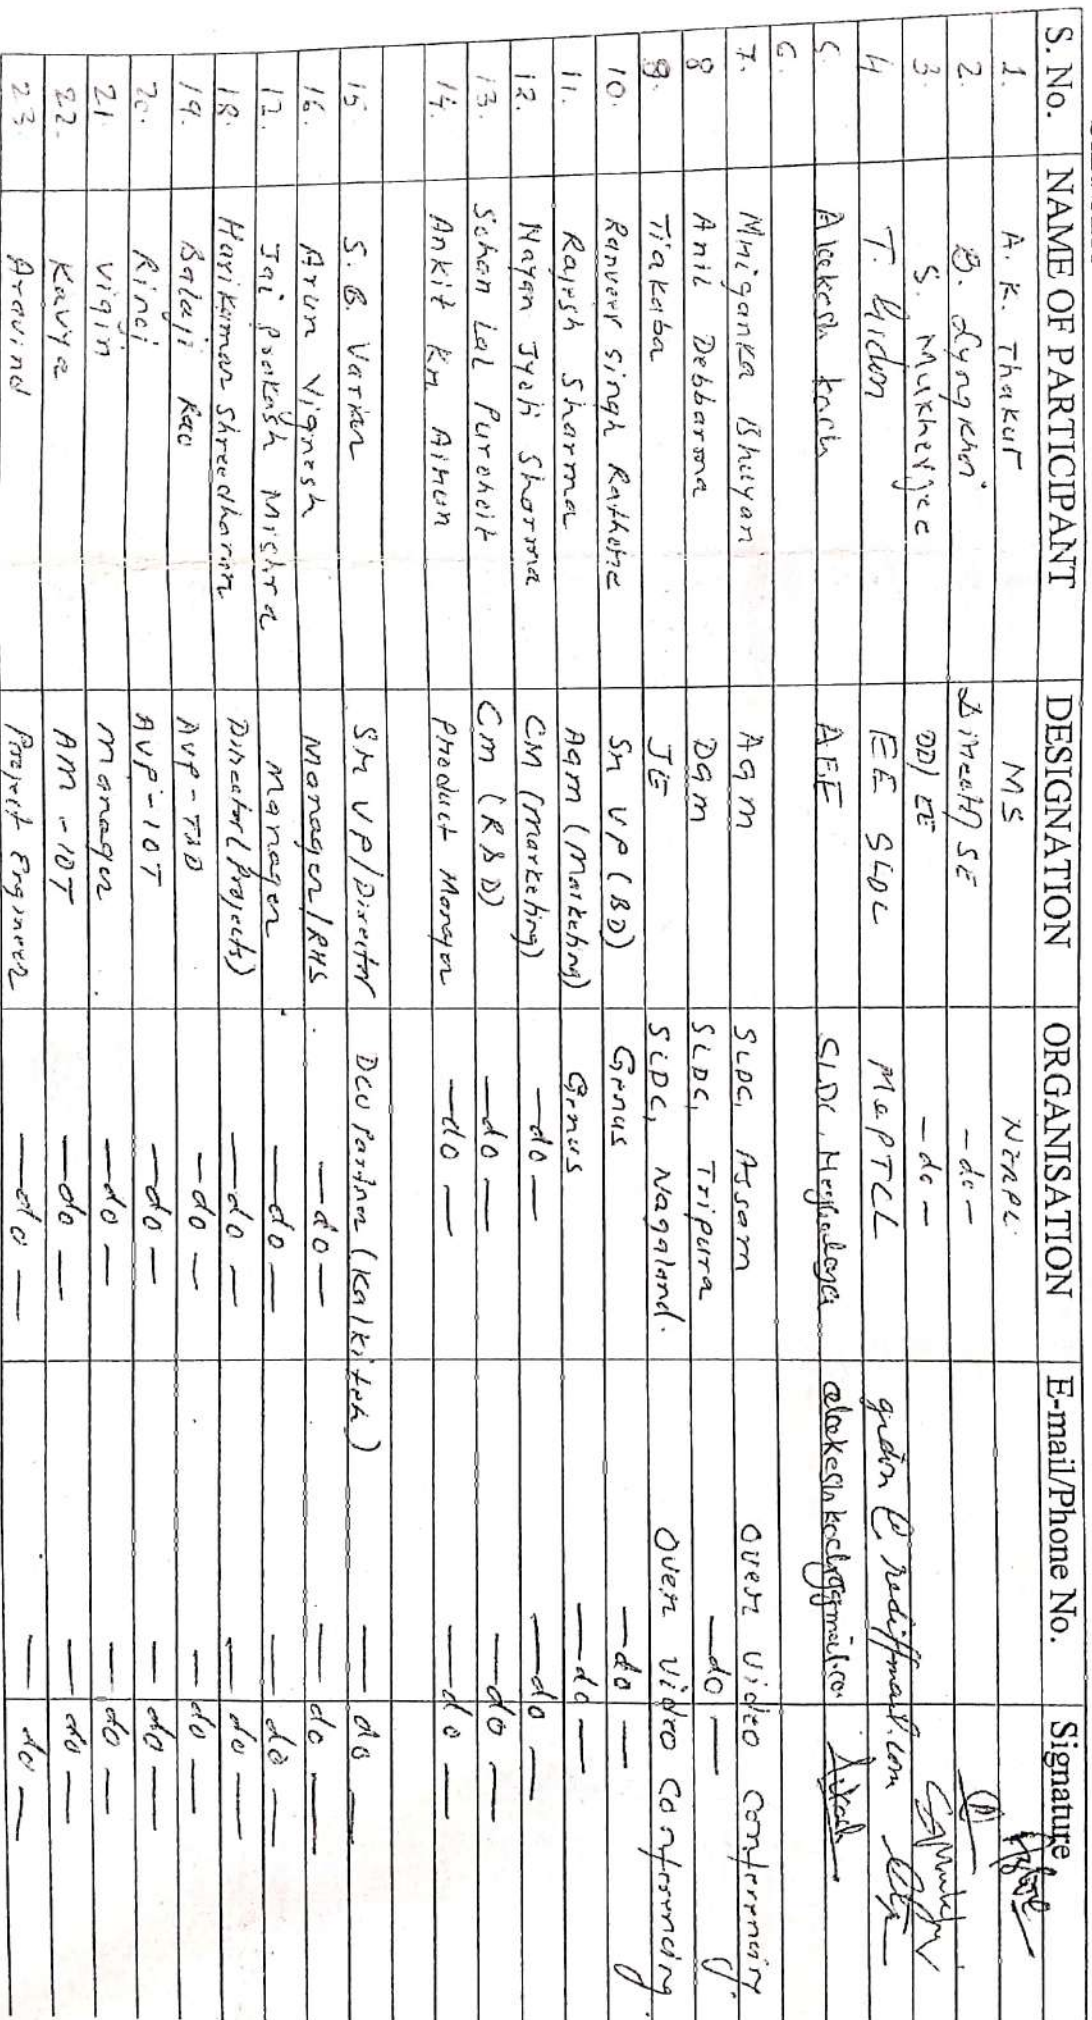 S. No. NAME OF PARTICIPANT DESIGNATION ORGANISATION E-mail/Phone No. Signature
1. A. K. Thakur MS NERPC
2. B. Lyngkhoi Director/SE —do—
3. S. Mukherjee DD/EE —do—
4 T. Gidon EE SLDC MePTCL gidon@rediffmail.com
5. Aloakesh AEE SLDC, Meghalaya
6.
7. Mriganka Bhuyan AGM SLDC, Assam Over video Conferencing
8 Anil Debbarma DGM SLDC, Tripura —do—
9. Tiakaba JE SLDC, Nagaland. Over video Conferencing.
10. Ranveer Singh Rathore Sr VP (BD) Genus —do—
11. Rajesh Sharma AGM (Marketing) Genus —do—
12. Nayan Jyoti Sharma CM (Marketing) —do— —do—
13. Sohan Lal Purohit CM (R&D) —do— —do—
14. Ankit Kr Product Manager —do— —do—
15 S. B. Varian SR VP/Director DCU Partner (Kalkitech) — do —
16. Arun Vignesh Manager/RHS —do— — do —
17. Jai Prakash Mishra Manager —do— — do —
18. Harikumar Shreedharan Director (Projects) —do— — do —
19. Balaji Rao AVP-TBD —do— — do —
20. Rinoj AVP-IOT —do— — do —
21 Vigin Manager —do— — do —
22. Kavya AM-IOT —do— — do —
23. Aravind Project Engineer —do— — do —